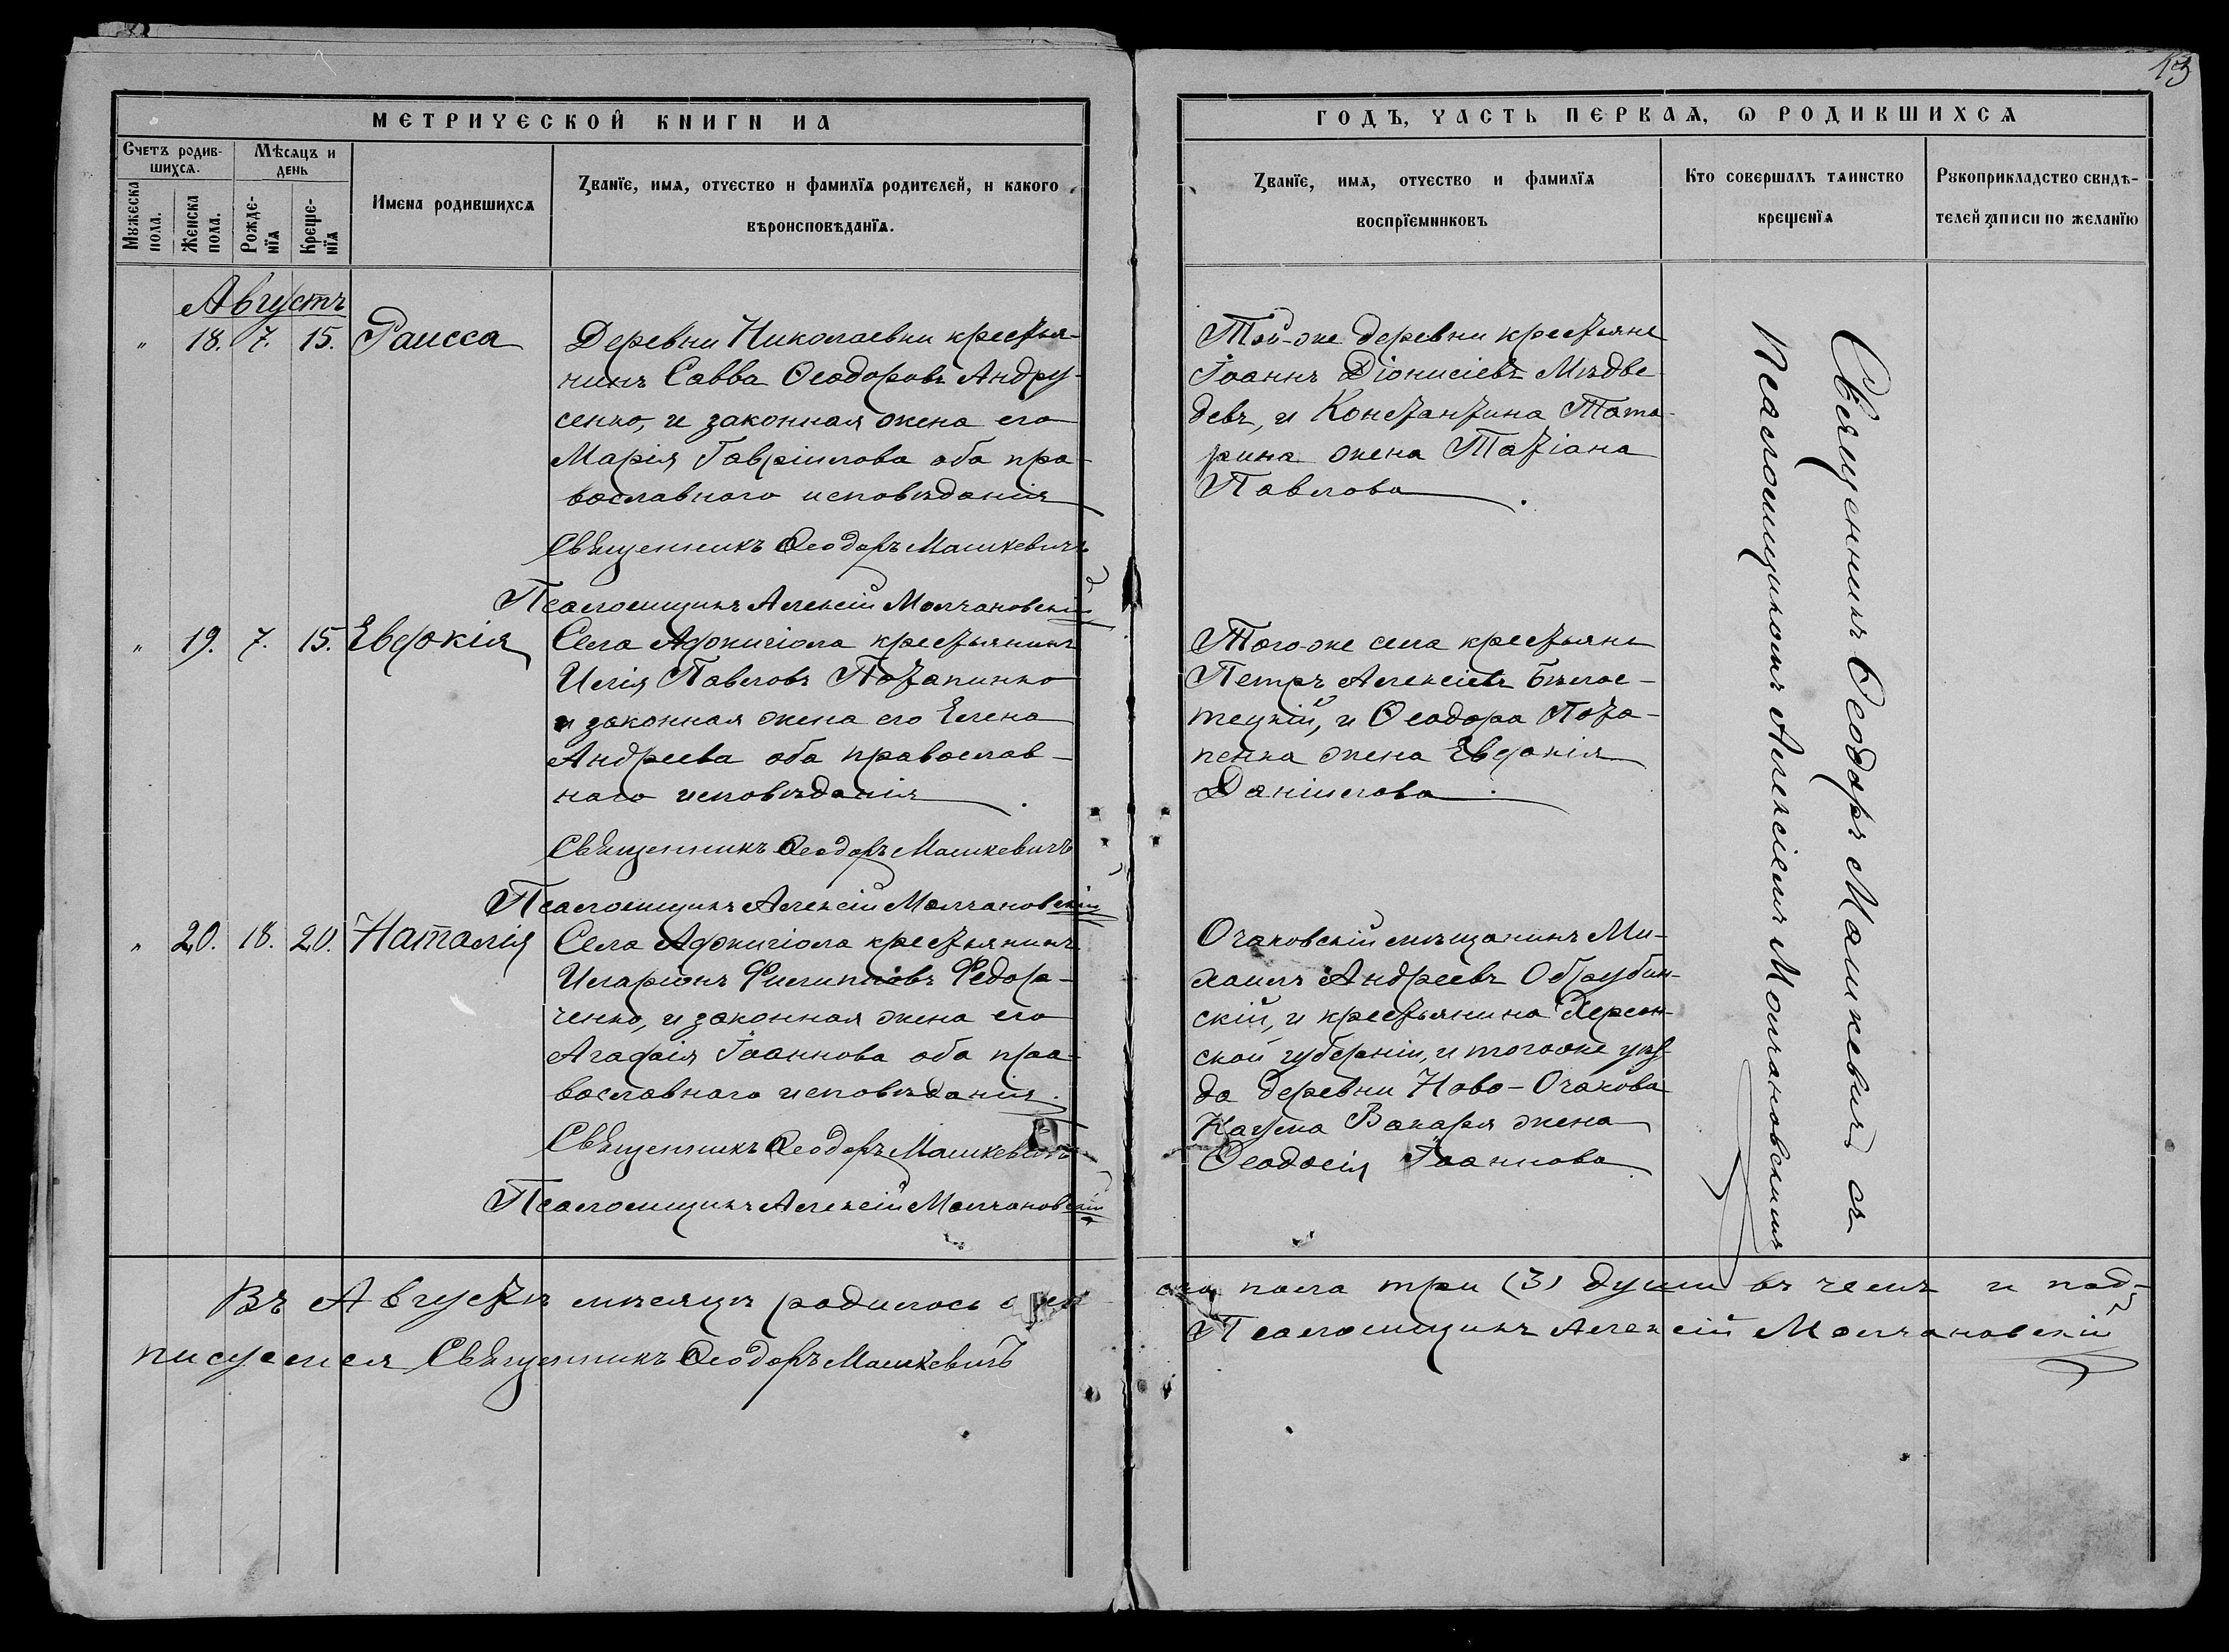 13
МЕТРИЧЕСКОЙ КНИГИ НА
ГОДЪ, ЧАСТЬ ПЕРВАЯ, Ѡ РОДИВШИХСЯ
Счетъ родив-
шихся.
Мужеска
пола.
Женска
пола.
Мѣсяцъ и
день
Рожде-
нїя
Креще-
нїя
Имена родившихся
Званїе, имя, отчество и фамилїя родителей, и какого
вѣроисповѣданїя.
Званїе, имя, отчество и фамилїя
воспрїемниковъ
Кто совершалъ таинство
крещенїя
Рукоприкладство свидѣ-
телей записи по желанїю
Августъ
" 18. 7. 15. Раисса
Деревни Николаевки крестья-
нинъ Савва Ѳеодоровъ Андру-
сенко, и законная жена его
Марія Гавріилова оба пра-
вославнаго исповѣданія
Священникъ Ѳеодоръ Машкевичъ
Псаломщикъ Алексій Молчановскій
Той-же деревни крестьяне
Іоаннъ Діонисіевъ Мѣдве-
девъ, и Константина Тата-
рина жена Татіана
Павлова.
" 19. 7. 15. Евдокія
Села Аджигіола крестьянинъ
Илія Павловъ Потапинко
и законная жена его Елена
Андреева оба православ-
наго исповѣданія.
Священникъ Ѳеодоръ Машкевичъ
Псаломщикъ Алексій Молчановскій
Того-же села крестьяне
Петръ Алексіевъ Бѣлос-
тецкій, и Ѳеодора Пота-
пенка жена Евдокія
Даніилова.
" 20. 18. 20. Наталія
Села Аджигіола крестьянинъ
Иларіонъ Филипповъ Федор-
ченко, и законная жена его
Агафія Іоаннова оба пра-
вославнаго исповѣданія.
Священникъ Ѳеодоръ Машкевичъ
Псаломщикъ Алексій Молчановскій
Очаковскій мѣщанинъ Ми-
хаилъ Андреевъ Обрубин-
скій, и крестьянина Херсон-
ской губерніи, и тогоже уѣз-
да деревни Ново-Очакова
Вакаря жена
Ѳеодосія Іоаннова
Священникъ Ѳеодоръ Машкевичъ съ
Псаломщикомъ Алексіемъ Молчановскимъ
Въ Августѣ мѣсяцѣ родилось женскаго пола три (3) души въ чемъ и под-
писуемся Священникъ Ѳеодоръ Машкевичъ
Псаломщикъ Алексій Молчановскій